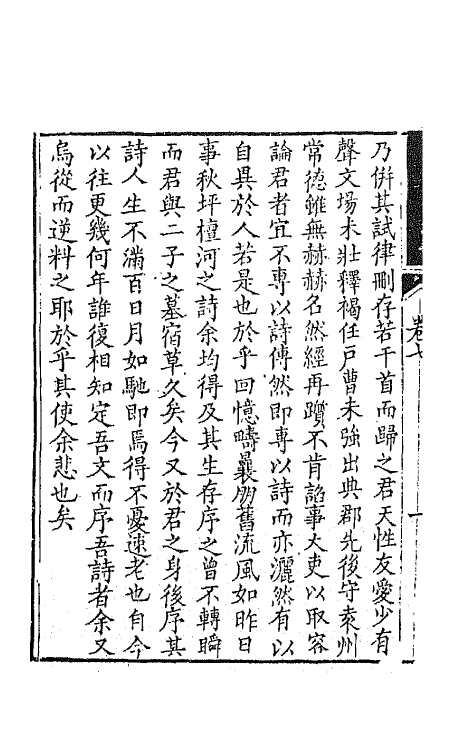 卷七
一
乃倂其試律刪存若干首而歸之君天性友愛少有
聲文場未壯釋褐任戸曹未強出典郡先後守袁州
常德雖無赫赫名然經再躓不肯諂事大吏以取容
論君者宜不專以詩傳然即專以詩而亦灑然有以
自異於人若是也於乎回憶疇曩朋舊流風如昨日
事秋坪檀河之詩余均得及其生存序之曾不轉瞬
而君與二子之墓宿草久矣今又於君之身後序其
詩人生不滿百日月如馳即焉得不憂速老也自今
以往更幾何年誰復相知定吾文而序吾詩者余又
烏從而逆料之耶於乎其使余悲也矣